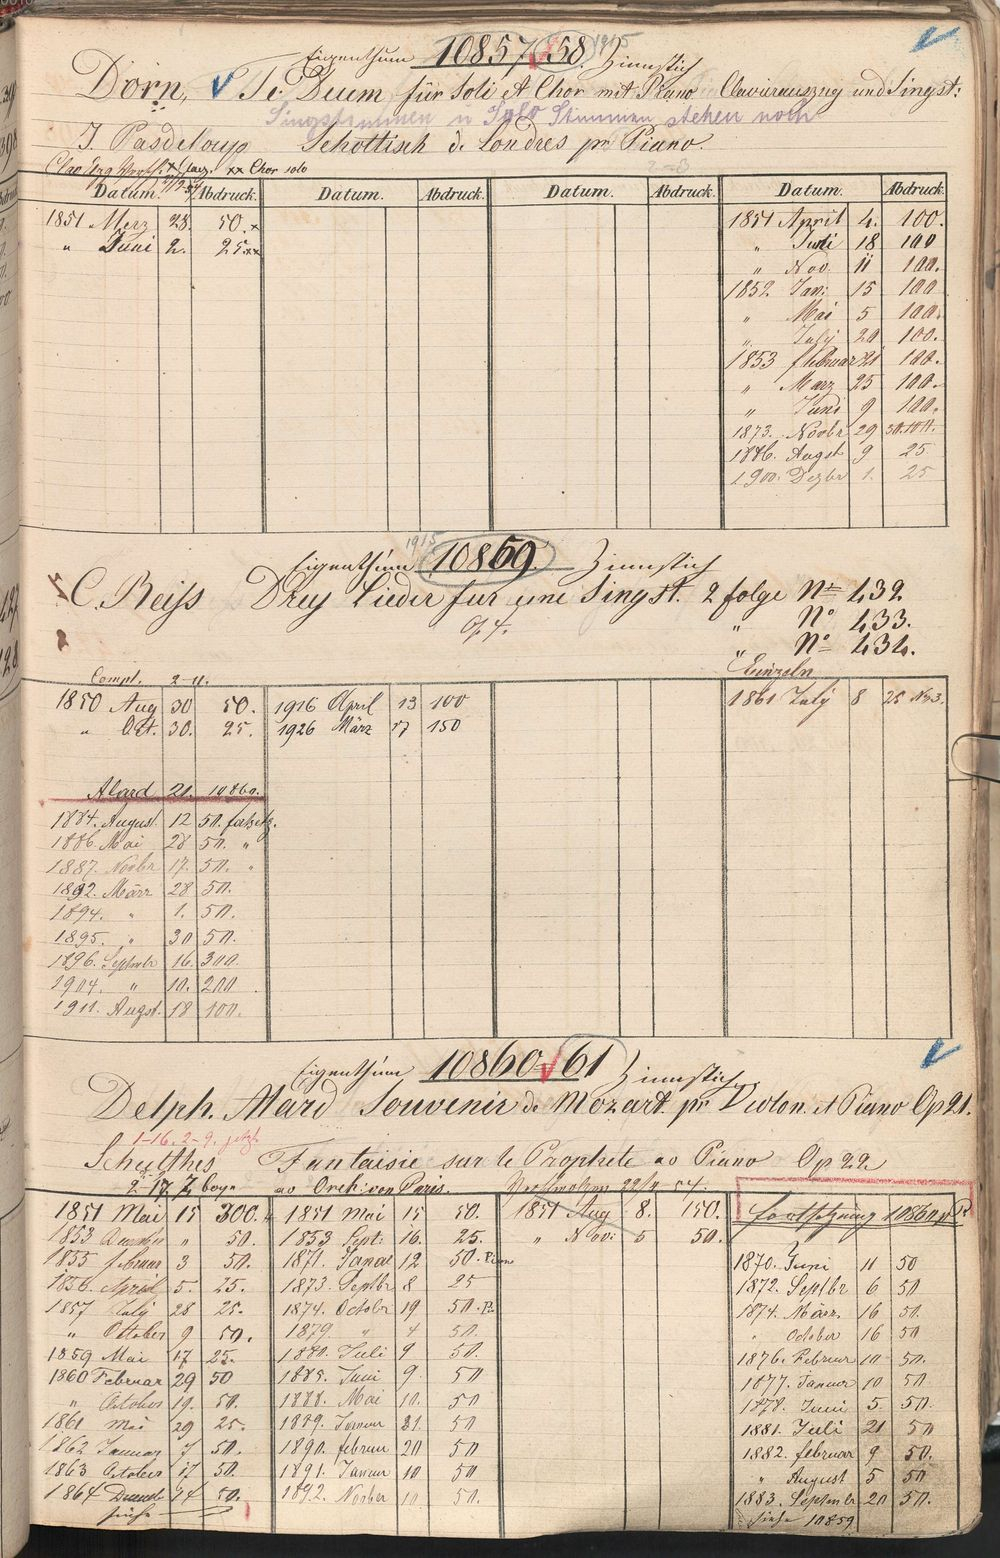 Eigenthum 10857/58. Zinnstich 1915
Dorn, Te Deum für Soli et Chor mit Piano Clavierauszug und Singst:
Singstimmen u Solo Stimmen stehen noch
J. Pasdeloup Schottisch de Londres pr Piano.
xx Chor solo
Datum. Abdruck. Datum. Abdruck. Datum. Abdruck. Datum. Abdruck.
1851 Merz 28. 50. x 1851 April 4. 100.
" Juni 2. 25. xx " Juni 18 100
" Nov. 11 100.
1852 Jan: 15 100
" Mai 5 100.
" July 20 100.
1853 februar 21 100.
" Marz 25 100.
" Juni 9 100.
1873. Novbr 29
1886. Augst 9 25
1900. Dezbr 1. 25
1915
Eigenthum 10859. Zinnstich
C. Reiss Drey Lieder für eine Singst. 2 folge No 432
Op 4. " No 433.
" No 434.
Compl. 2-11. Einzeln
1850 Aug 30 50. 1916 April 13 100 1861 July 8 25 No 3.
" Oct. 30. 25. 1926 März 17 150
Alard 21. 10860.
1884. August 12 50. fortsetz.
1886. Mai 28 50. "
1887. Novbr 17. 50. "
1892. März 28 50.
1894. " 1. 50.
1895. " 30 50.
1896. Septmbr 16. 300
1904. " 10. 200
1911. Augst. 18 100.
Eigenthum 10860 61 Zinnstich
Delph. Alard Souvenir de Mozart pr Violon et Piano Op 21.
1-16. 2-9. jetzt
Schulthes Fantaisie sur le Prophete Piano Op 22
Orch: von Paris.
1851 Mai 15 300. 1851 Mai 15 50. 1851 Aug 8. 150. Fortsetzung 10860
1853 " 50. 1853 Sept: 16. 25. " Nov: 5 50.
1855 februar 3 50. 1871. Januar 12 50. 1870. Juni 11 50
1856. April 5. 25. 1873. Septbr 8 25 1872. Septbr 6 50
1857 July 28 25. 1874. Octobr 19 50. 1874. März 16 50.
" October 9 50. 1879 " 4 50. " October 16 50
1859 Mai 17 25. 1880. Juli 9 50. 1876. Februar 10 50.
1860 Februar 29 50 1885. Juni 9 50 1877. Januar 10 50
" October 19. 50. 1888. Mai 10. 50 1878. Juni 5. 50.
1861 Mai 29 25. 1889. Januar 31. 50 1881. Juli 21 50
1862 Januar 7 50. 1890. februar 20 50 1882. februar 9 50.
1863 October 17 50. 1891. Januar 10 50 " August 5 50
1864 14 50. 1892. Novber 10 50. 1883. Septmbr 20 50.
siehe siehe 10859